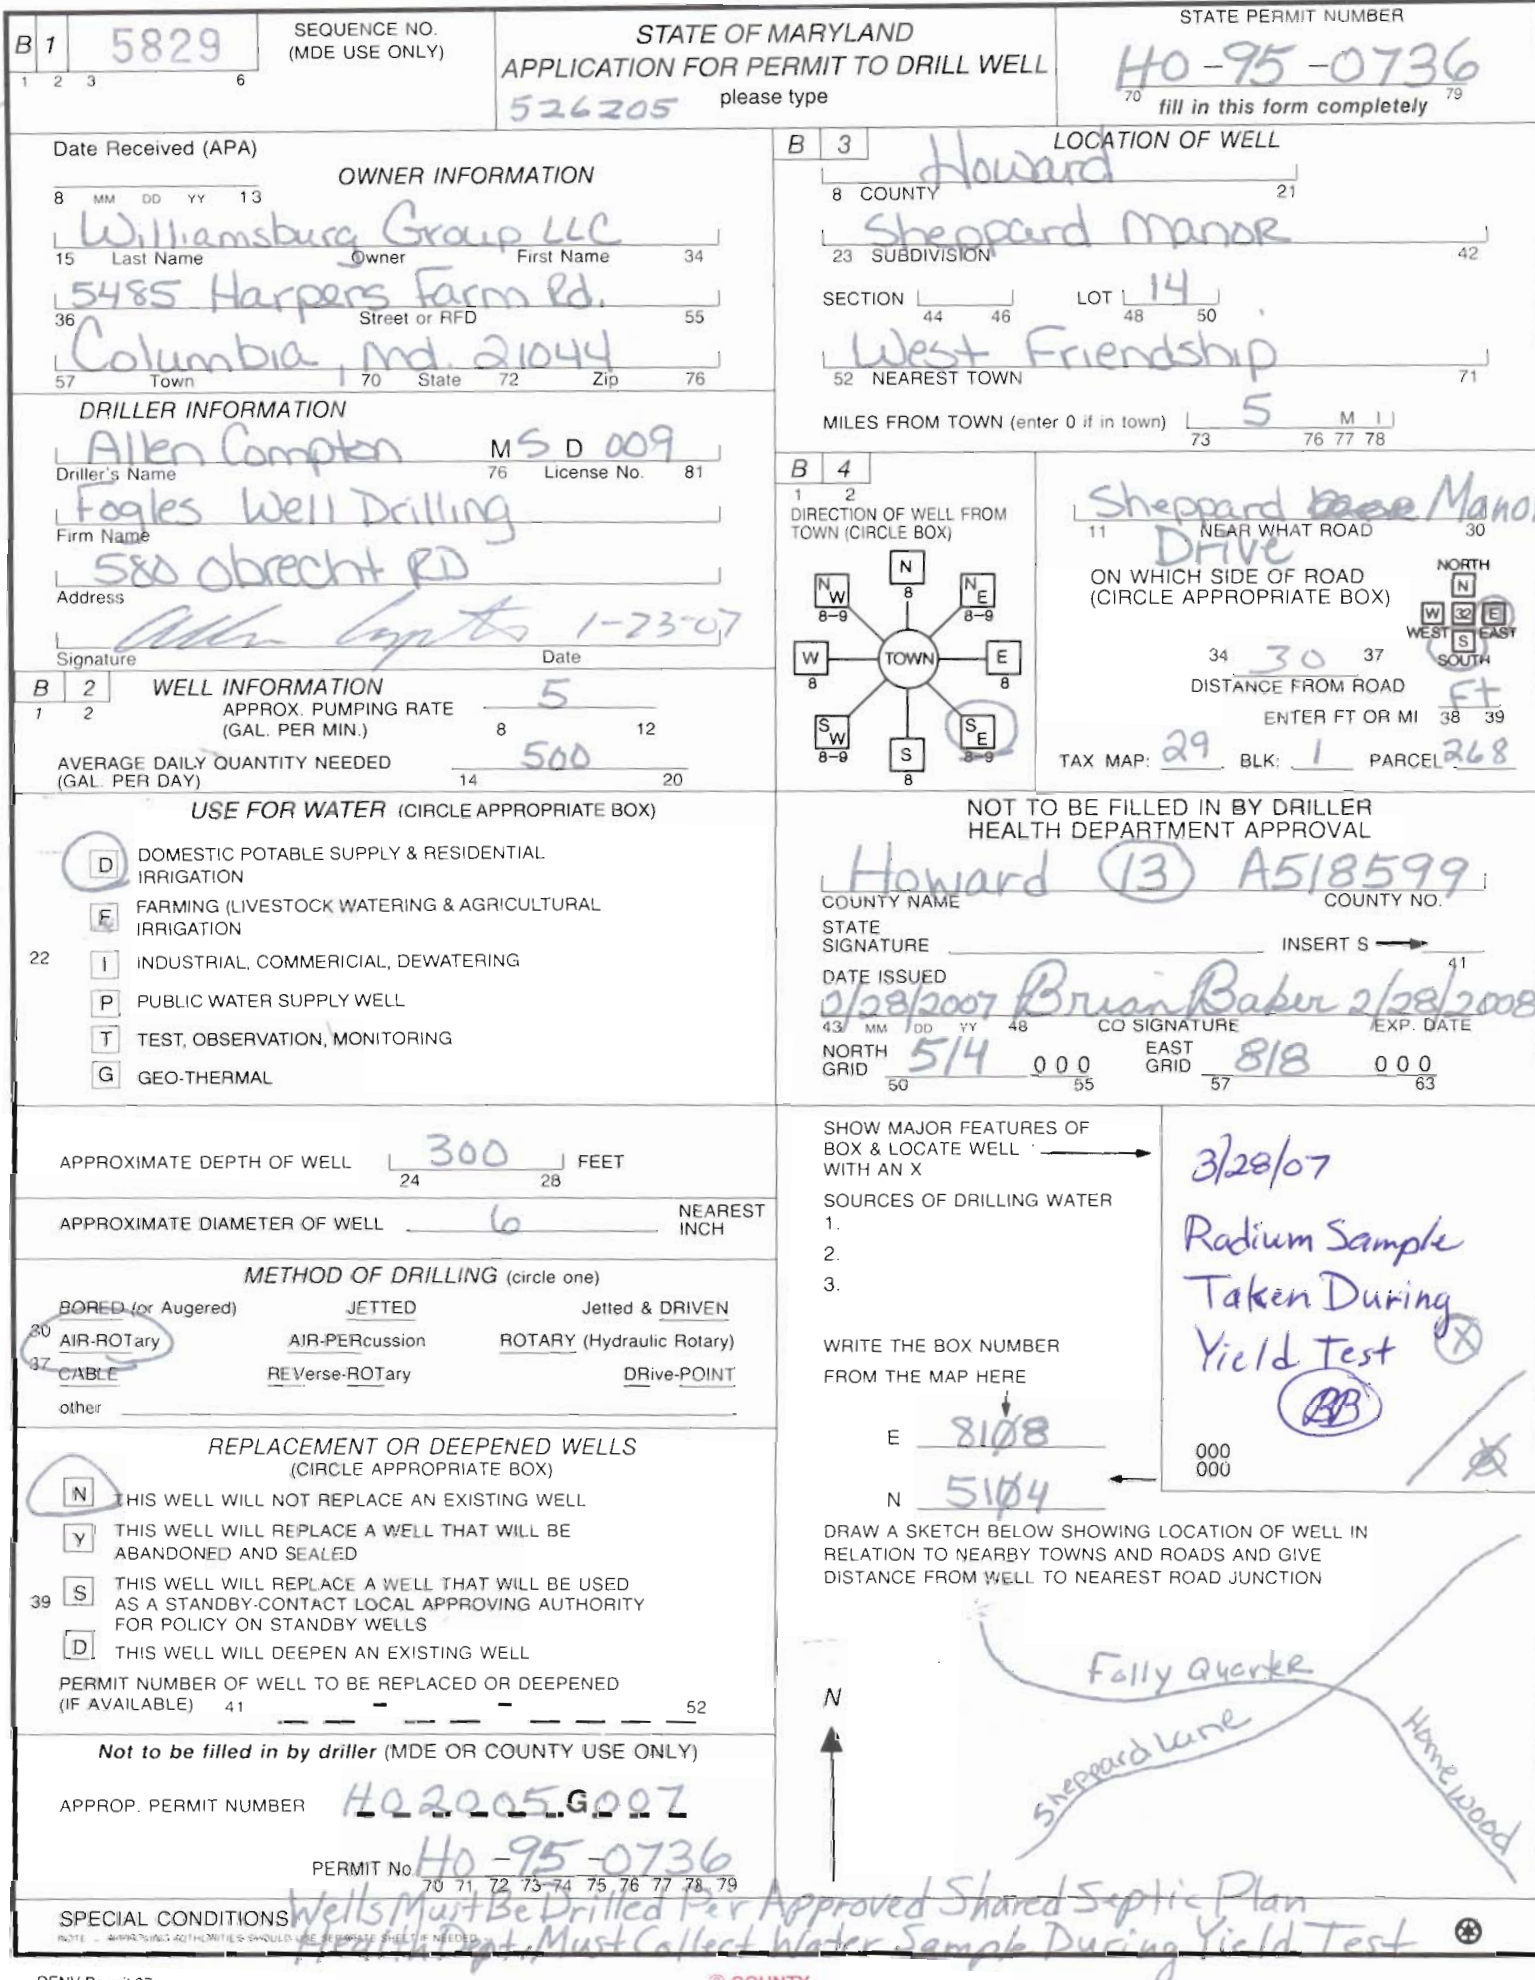 B 1
5829
1 2 3 6
SEQUENCE NO.
(MDE USE ONLY)
STATE OF MARYLAND
APPLICATION FOR PERMIT TO DRILL WELL
526205 please type
STATE PERMIT NUMBER
HO-95-0736
70 fill in this form completely 79
Date Received (APA)
8 MM DD YY 13
OWNER INFORMATION
Williamsburg Group LLC
15 Last Name Owner First Name 34
5485 Harpers Farm Rd.
36 Street or RFD 55
Columbia, Md. 21044
57 Town 70 State 72 Zip 76
DRILLER INFORMATION
Allen Compton M S D 009
Driller's Name 76 License No. 81
Fogles Well Drilling
Firm Name
580 Obrecht RD
Address
1-23-07
Signature Date
B 2 WELL INFORMATION
1 2
APPROX. PUMPING RATE 5
(GAL. PER MIN.) 8 12
AVERAGE DAILY QUANTITY NEEDED 500
(GAL. PER DAY) 14 20
USE FOR WATER (CIRCLE APPROPRIATE BOX)
D DOMESTIC POTABLE SUPPLY & RESIDENTIAL
IRRIGATION
F FARMING (LIVESTOCK WATERING & AGRICULTURAL
IRRIGATION
22
I INDUSTRIAL, COMMERICIAL, DEWATERING
P PUBLIC WATER SUPPLY WELL
T TEST, OBSERVATION, MONITORING
G GEO-THERMAL
APPROXIMATE DEPTH OF WELL 300 FEET
24 28
APPROXIMATE DIAMETER OF WELL 6 NEAREST
INCH
METHOD OF DRILLING (circle one)
BORED (or Augered) JETTED Jetted & DRIVEN
30 AIR-ROTary AIR-PERcussion ROTARY (Hydraulic Rotary)
37 CABLE REVerse-ROTary DRive-POINT
other
REPLACEMENT OR DEEPENED WELLS
(CIRCLE APPROPRIATE BOX)
N THIS WELL WILL NOT REPLACE AN EXISTING WELL
Y THIS WELL WILL REPLACE A WELL THAT WILL BE
ABANDONED AND SEALED
39 S THIS WELL WILL REPLACE A WELL THAT WILL BE USED
AS A STANDBY-CONTACT LOCAL APPROVING AUTHORITY
FOR POLICY ON STANDBY WELLS
D THIS WELL WILL DEEPEN AN EXISTING WELL
PERMIT NUMBER OF WELL TO BE REPLACED OR DEEPENED
(IF AVAILABLE) 41 - - 52
Not to be filled in by driller (MDE OR COUNTY USE ONLY)
APPROP. PERMIT NUMBER HO2005G007
PERMIT No. HO-95-0736
70 71 72 73 74 75 76 77 78 79
B 3 LOCATION OF WELL
Howard
8 COUNTY 21
Sheppard Manor
23 SUBDIVISION 42
SECTION LOT 14
44 46 48 50
West Friendship
52 NEAREST TOWN 71
MILES FROM TOWN (enter 0 if in town) 5 M I
73 76 77 78
B 4
1 2
DIRECTION OF WELL FROM
TOWN (CIRCLE BOX)
N
8
NW
8-9
NE
8-9
W
8
TOWN
E
8
SW
8-9
S
8
SE
8-9
Sheppard Manor
11 NEAR WHAT ROAD 30
Drive
ON WHICH SIDE OF ROAD
(CIRCLE APPROPRIATE BOX)
NORTH
N
W 32 E
WEST S EAST
SOUTH
34 30 37
DISTANCE FROM ROAD
Ft
ENTER FT OR MI 38 39
TAX MAP: 29 BLK: 1 PARCEL 268
NOT TO BE FILLED IN BY DRILLER
HEALTH DEPARTMENT APPROVAL
Howard 13 A518599
COUNTY NAME COUNTY NO.
STATE
SIGNATURE INSERT S
41
DATE ISSUED
2/28/2007 Brian Baker 2/28/2008
43 MM DD YY 48 CO SIGNATURE EXP. DATE
NORTH
GRID 514 0 0 0 EAST
GRID 818 0 0 0
50 55 57 63
SHOW MAJOR FEATURES OF
BOX & LOCATE WELL
WITH AN X
SOURCES OF DRILLING WATER
1.
2.
3.
WRITE THE BOX NUMBER
FROM THE MAP HERE
E 8108
N 5104
3/28/07
Radium Sample
Taken During
Yield Test X
BB
000
000
DRAW A SKETCH BELOW SHOWING LOCATION OF WELL IN
RELATION TO NEARBY TOWNS AND ROADS AND GIVE
DISTANCE FROM WELL TO NEAREST ROAD JUNCTION
N
Folly Quarter
Sheppard Lane
Homewood
SPECIAL CONDITIONS Wells Must Be Drilled Per Approved Shared Septic Plan
NOTE - APPROVING AUTHORITIES SHOULD USE SEPARATE SHEET IF NEEDED
Health Dept. Must Collect Water Sample During Yield Test
COUNTY